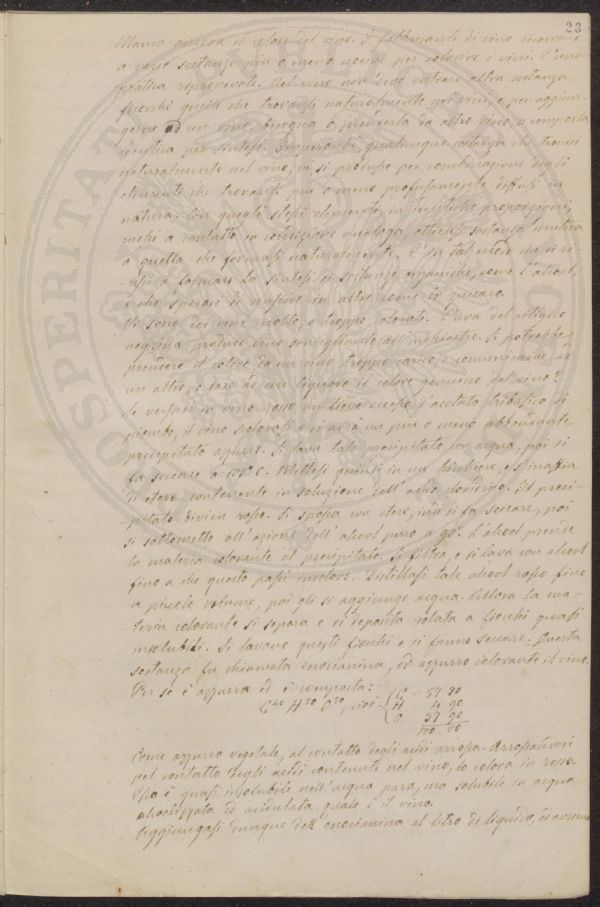 23
Manca ancora il colore del vino. I fabbricanti di vino ricorrono
a varie sostanze più o meno nocive per colorire i vini. È una
pratica riprovevole. Nel vino non deve entrare altra sostanza
fuorchè quelle che trovansi naturalmente nei vini, e per aggiun-
gerne ad un vino, bisogna o prenderla da altro vino, o comporla
identica per sintesi. Imperocchè, qualunque sostanza che trovisi
naturalmente nel vino, vi si produsse per combinazione degli
elementi che trovansi più o meno profusamente diffusi in
natura. Con quegli stessi elementi, in identiche proporzioni,
messi a contatto in condizione analoga, ottiensi sostanza identica
a quella che formasi naturalmente. È in tal modo che si ri-
-uscì a formare la sintesi di sostanze organiche, come l'alcool,
e che sperasi di riuscire in altre come lo zuccaro.
Vi sono dei vini molto, e troppo colorati. L'uva del vitigno
negrina produce vino somigliante all'inchiostro. Si potrebbe
prendere il colore da un vino troppo carico, e comunicarne ad
un altro, o dare ad un liquore il colore genuino del vino?
Se versasi in vino rosso un lieve eccesso d'acetato tribasico di
piombo, il vino scolorasi e si avrà un più o meno abbondante
precipitato azzurro. Si lava tale precipitato con acqua, poi si
fa seccare a 100° C. Mettesi quindi in un bicchiere, e s'inaffia
di etere contenente in soluzione dell'acido cloridrico. Il preci-
-pitato divien rosso. Si sposta con etere, indi si fa seccare, poi
si sottomette all'azione dell'alcool puro a 90°. L'alcool prende
la materia colorante al precipitato. Si filtra, e si lava con alcool
fino a che questo passi incolore. Distillasi tale alcool rosso fino
a piccolo volume, poi gli si aggiunge acqua. Allora la ma-
-teria colorante si separa e si deposita isolata a fiocchi quasi
insolubili. Si lavano questi fiocchi e si fanno seccare. Questa
sostanza fu chiamata enocianina, od azzurro colorante il vino.
Per sè è azzurra ed è composta:
C 57 20
C⁴⁰ H²⁰ O²⁰, cioè H 4 90
O 37 90
100 00
Come azzurro vegetale, al contatto degli acidi arrossa. Arrossandosi
pel contatto degli acidi contenuti nel vino, lo colora in rosso.
Essa è quasi insolubile nell'acqua pura, ma solubile in acqua
alcolizzata ed acidulata quale è il vino.
Aggiungasi dunque dell'enocianina al litro di liquido, ed avremo